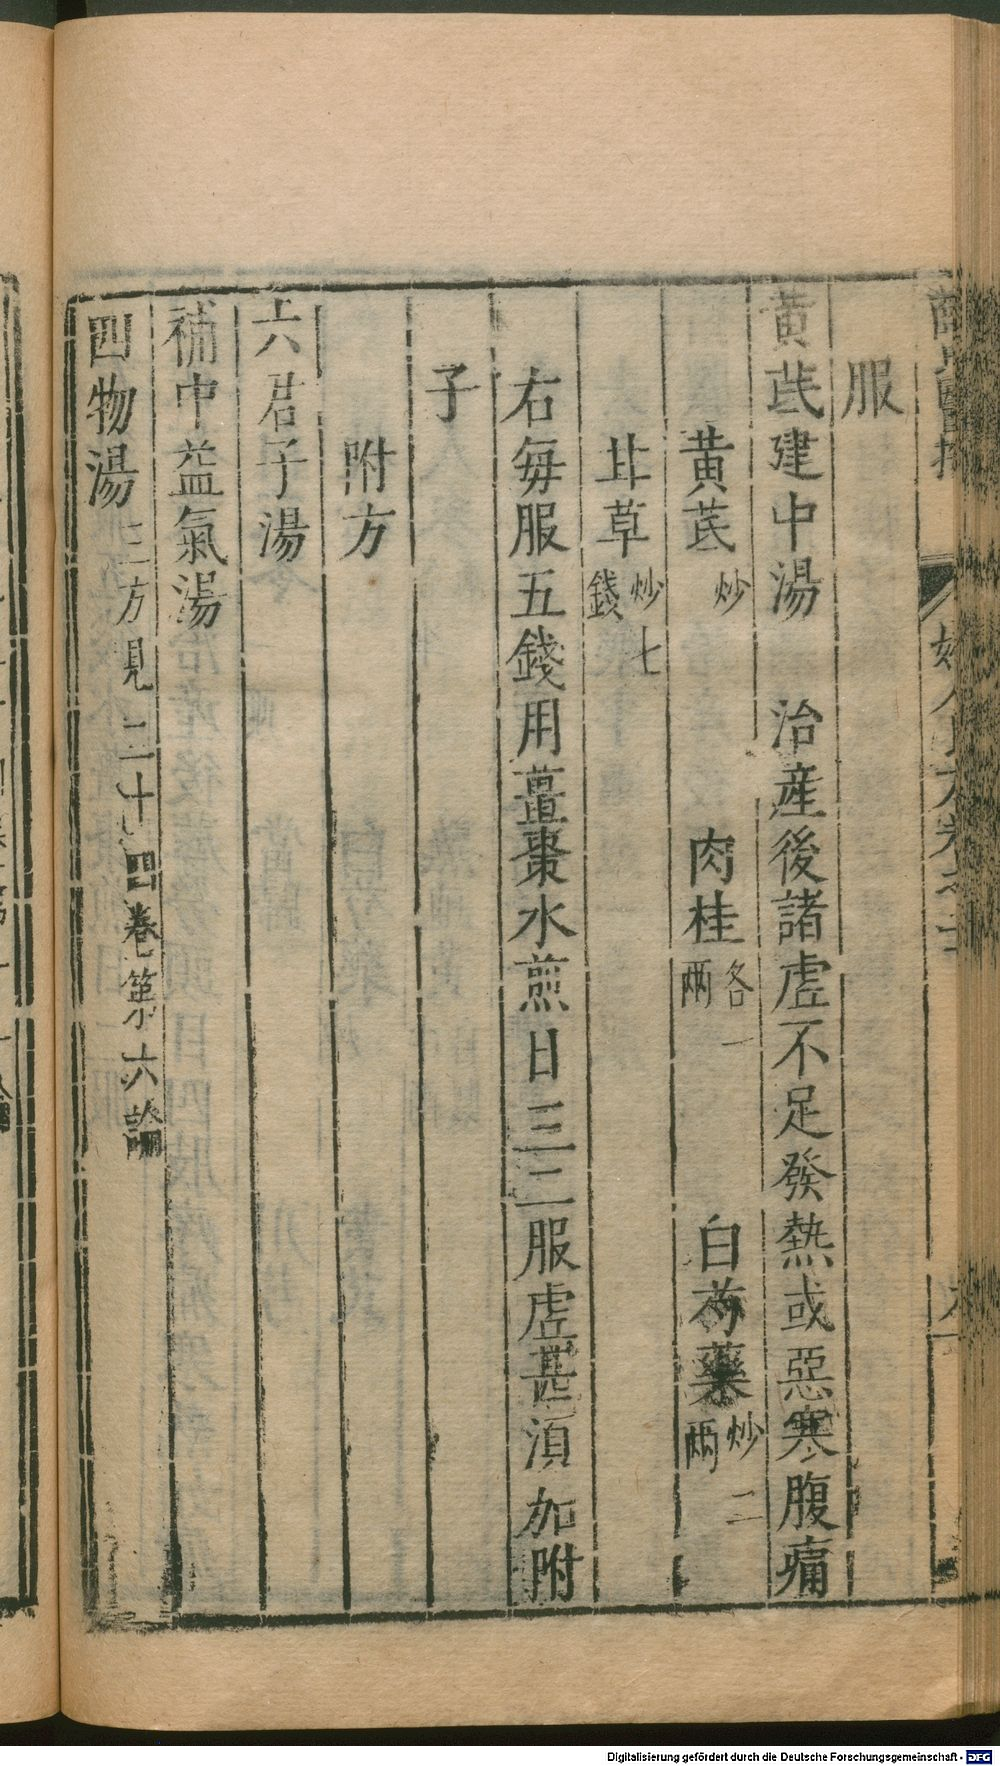 服
黃芪建中湯 治產後諸虛不足發熱或惡寒腹痛
黃芪炒 肉桂各一兩 白芍藥炒二兩
甘草炒七錢
右每服五錢用薑棗水煎日三二服虛甚須加附
子
附方
六君子湯
補中益氣湯
四物湯三方見二十四卷第六論
Digitalisierung gefördert durch die Deutsche Forschungsgemeinschaft - DFG